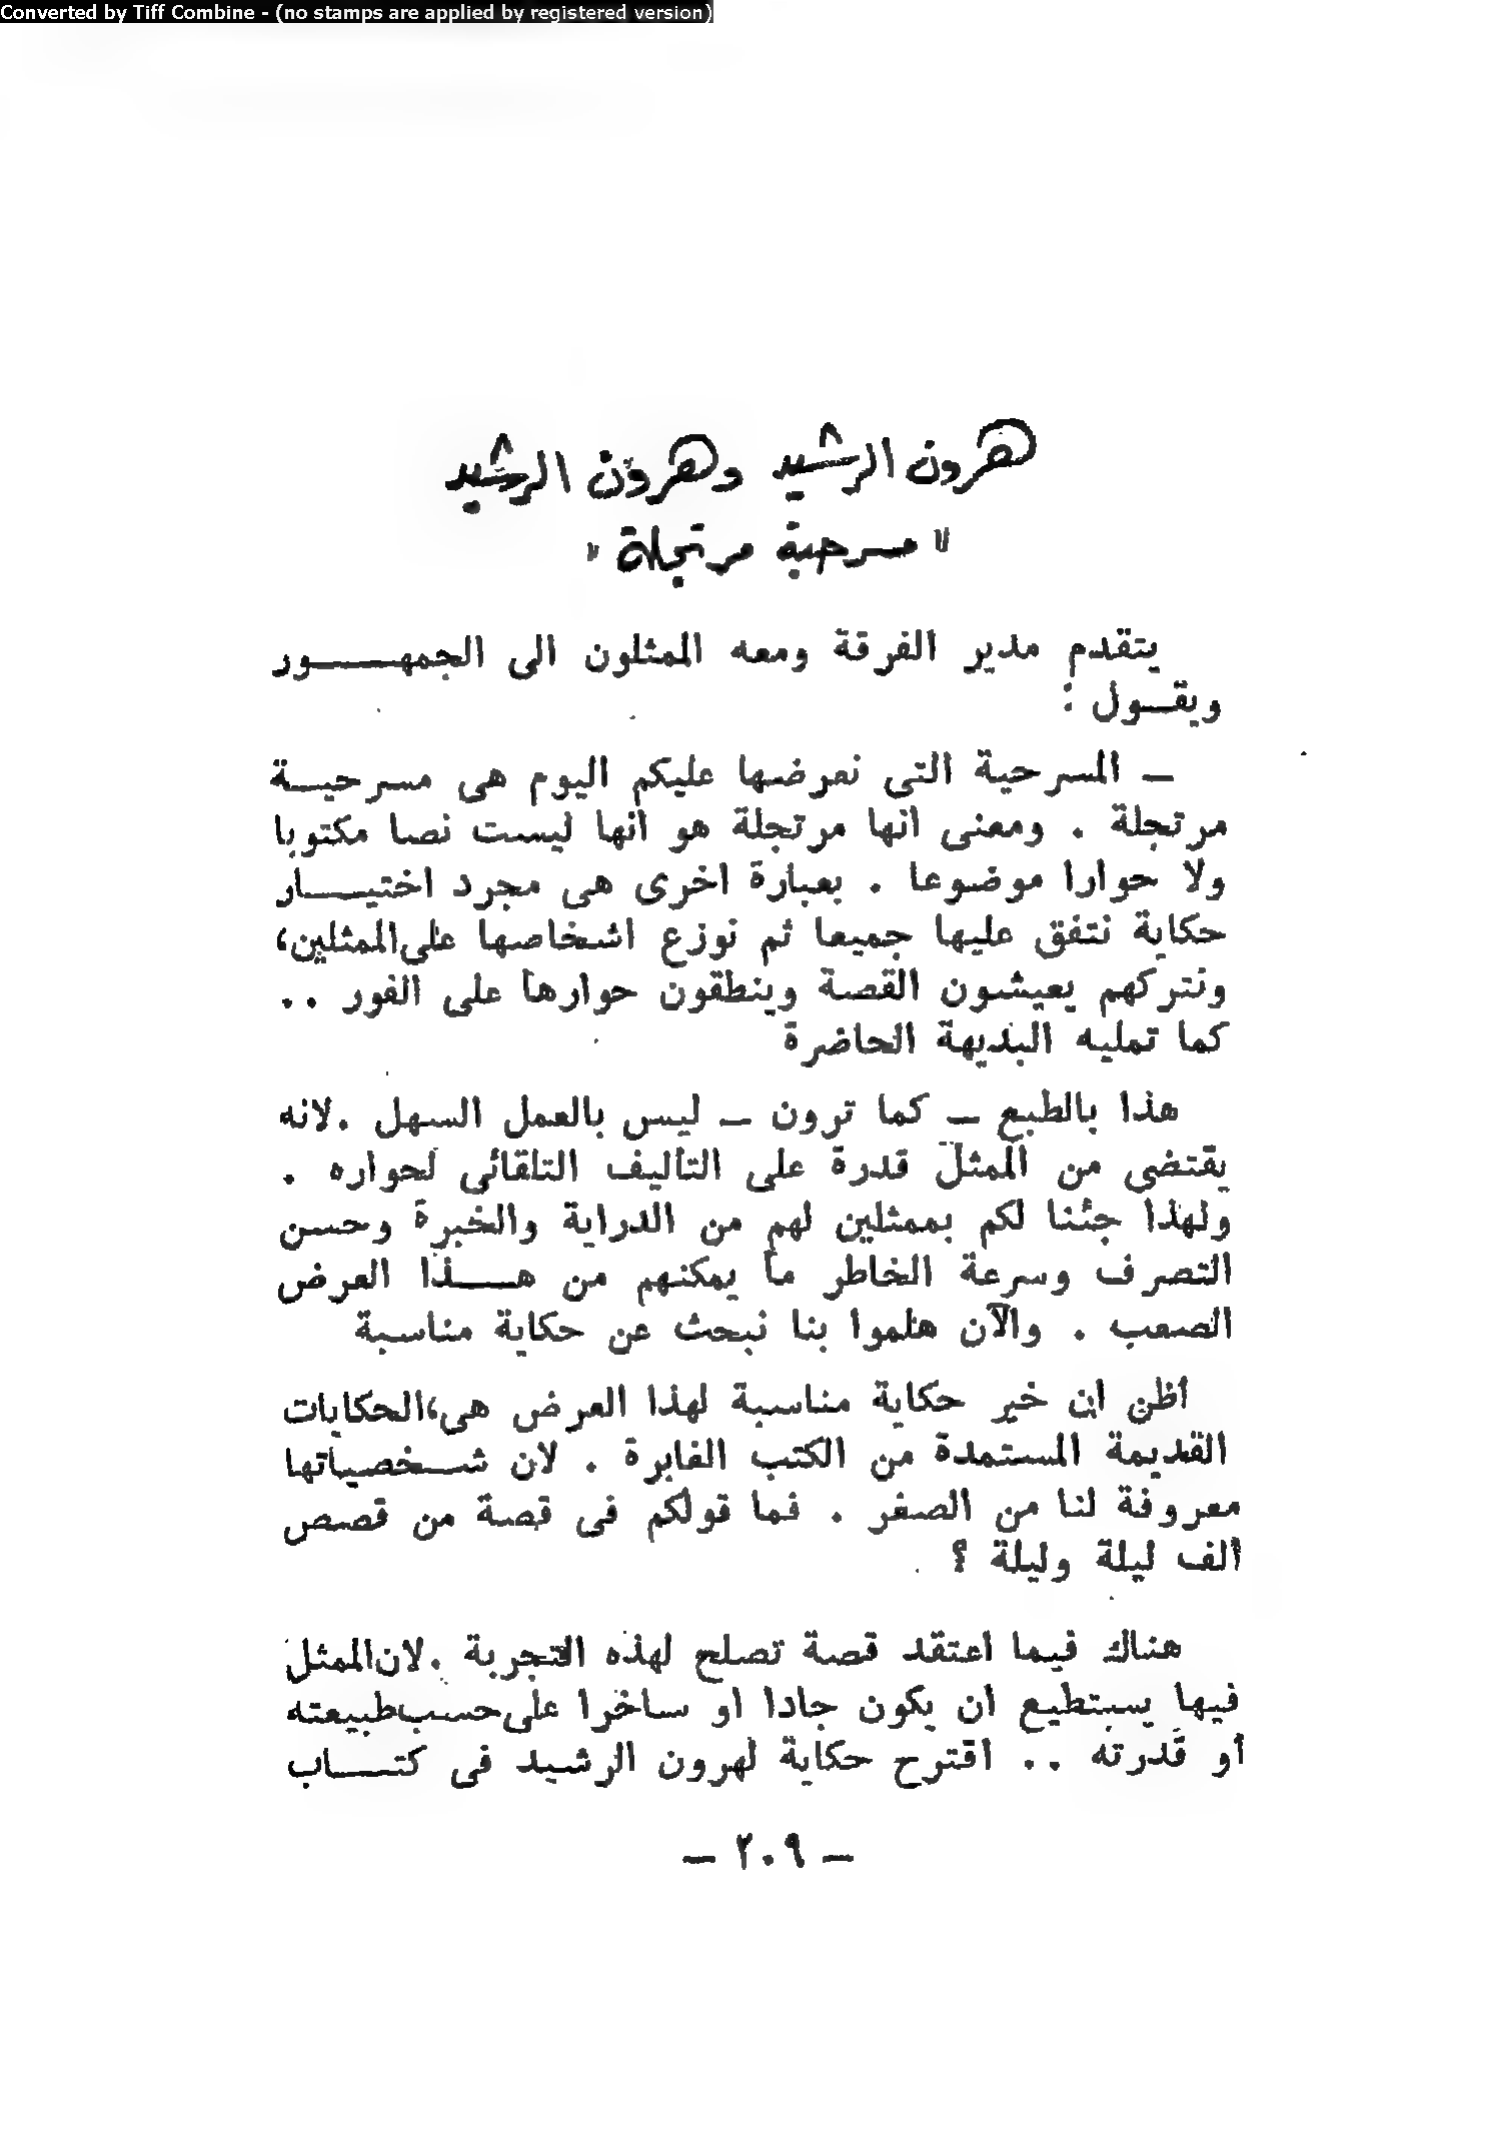 Converted by Tiff Combine - (no stamps are applied by registered version)
هرون الرشيد وهرون الرشيد
" مسرحية مرتجلة "
يتقدم مدير الفرقة ومعه الممثلون الى الجمهور
ويقول :
ـ المسرحية التى نعرضها عليكم اليوم هى مسرحية
مرتجلة . ومعنى أنها مرتجلة هو انها ليست نصا مكتوبا
ولا حوارا موضوعا . بعبارة اخرى هى مجرد اختيار
حكاية نتفق عليها جميعا ثم نوزع اشخاصها على الممثلين،
ونتركهم يعيشون القصة وينطقون حوارها على الفور ..
كما تمليه البديهة الحاضرة
هذا بالطبع ـ كما ترون ـ ليس بالعمل السهل .لانه
يقتضى من الممثل قدرة على التأليف التلقائى لحواره .
ولهذا جئنا لكم بممثلين لهم من الدراية والخبرة وحسن
التصرف وسرعة الخاطر ما يمكنهم من هذا العرض
الصعب . والآن هلموا بنا نبحث عن حكاية مناسبة
أظن ان خير حكاية مناسبة لهذا العرض هى، الحكايات
القديمة المستمدة من الكتب الغابرة . لان شخصياتها
معروفة لنا من الصغر . فما قولكم فى قصة من قصص
ألف ليلة وليلة ؟
هناك فيما أعتقد قصة تصلح لهذه التجربة .لان الممثل
فيها يستطيع ان يكون جادا او ساخرا على حسب طبيعته
أو قدرته .. اقترح حكاية لهرون الرشيد فى كتاب
ـ ٢٠٩ ـ